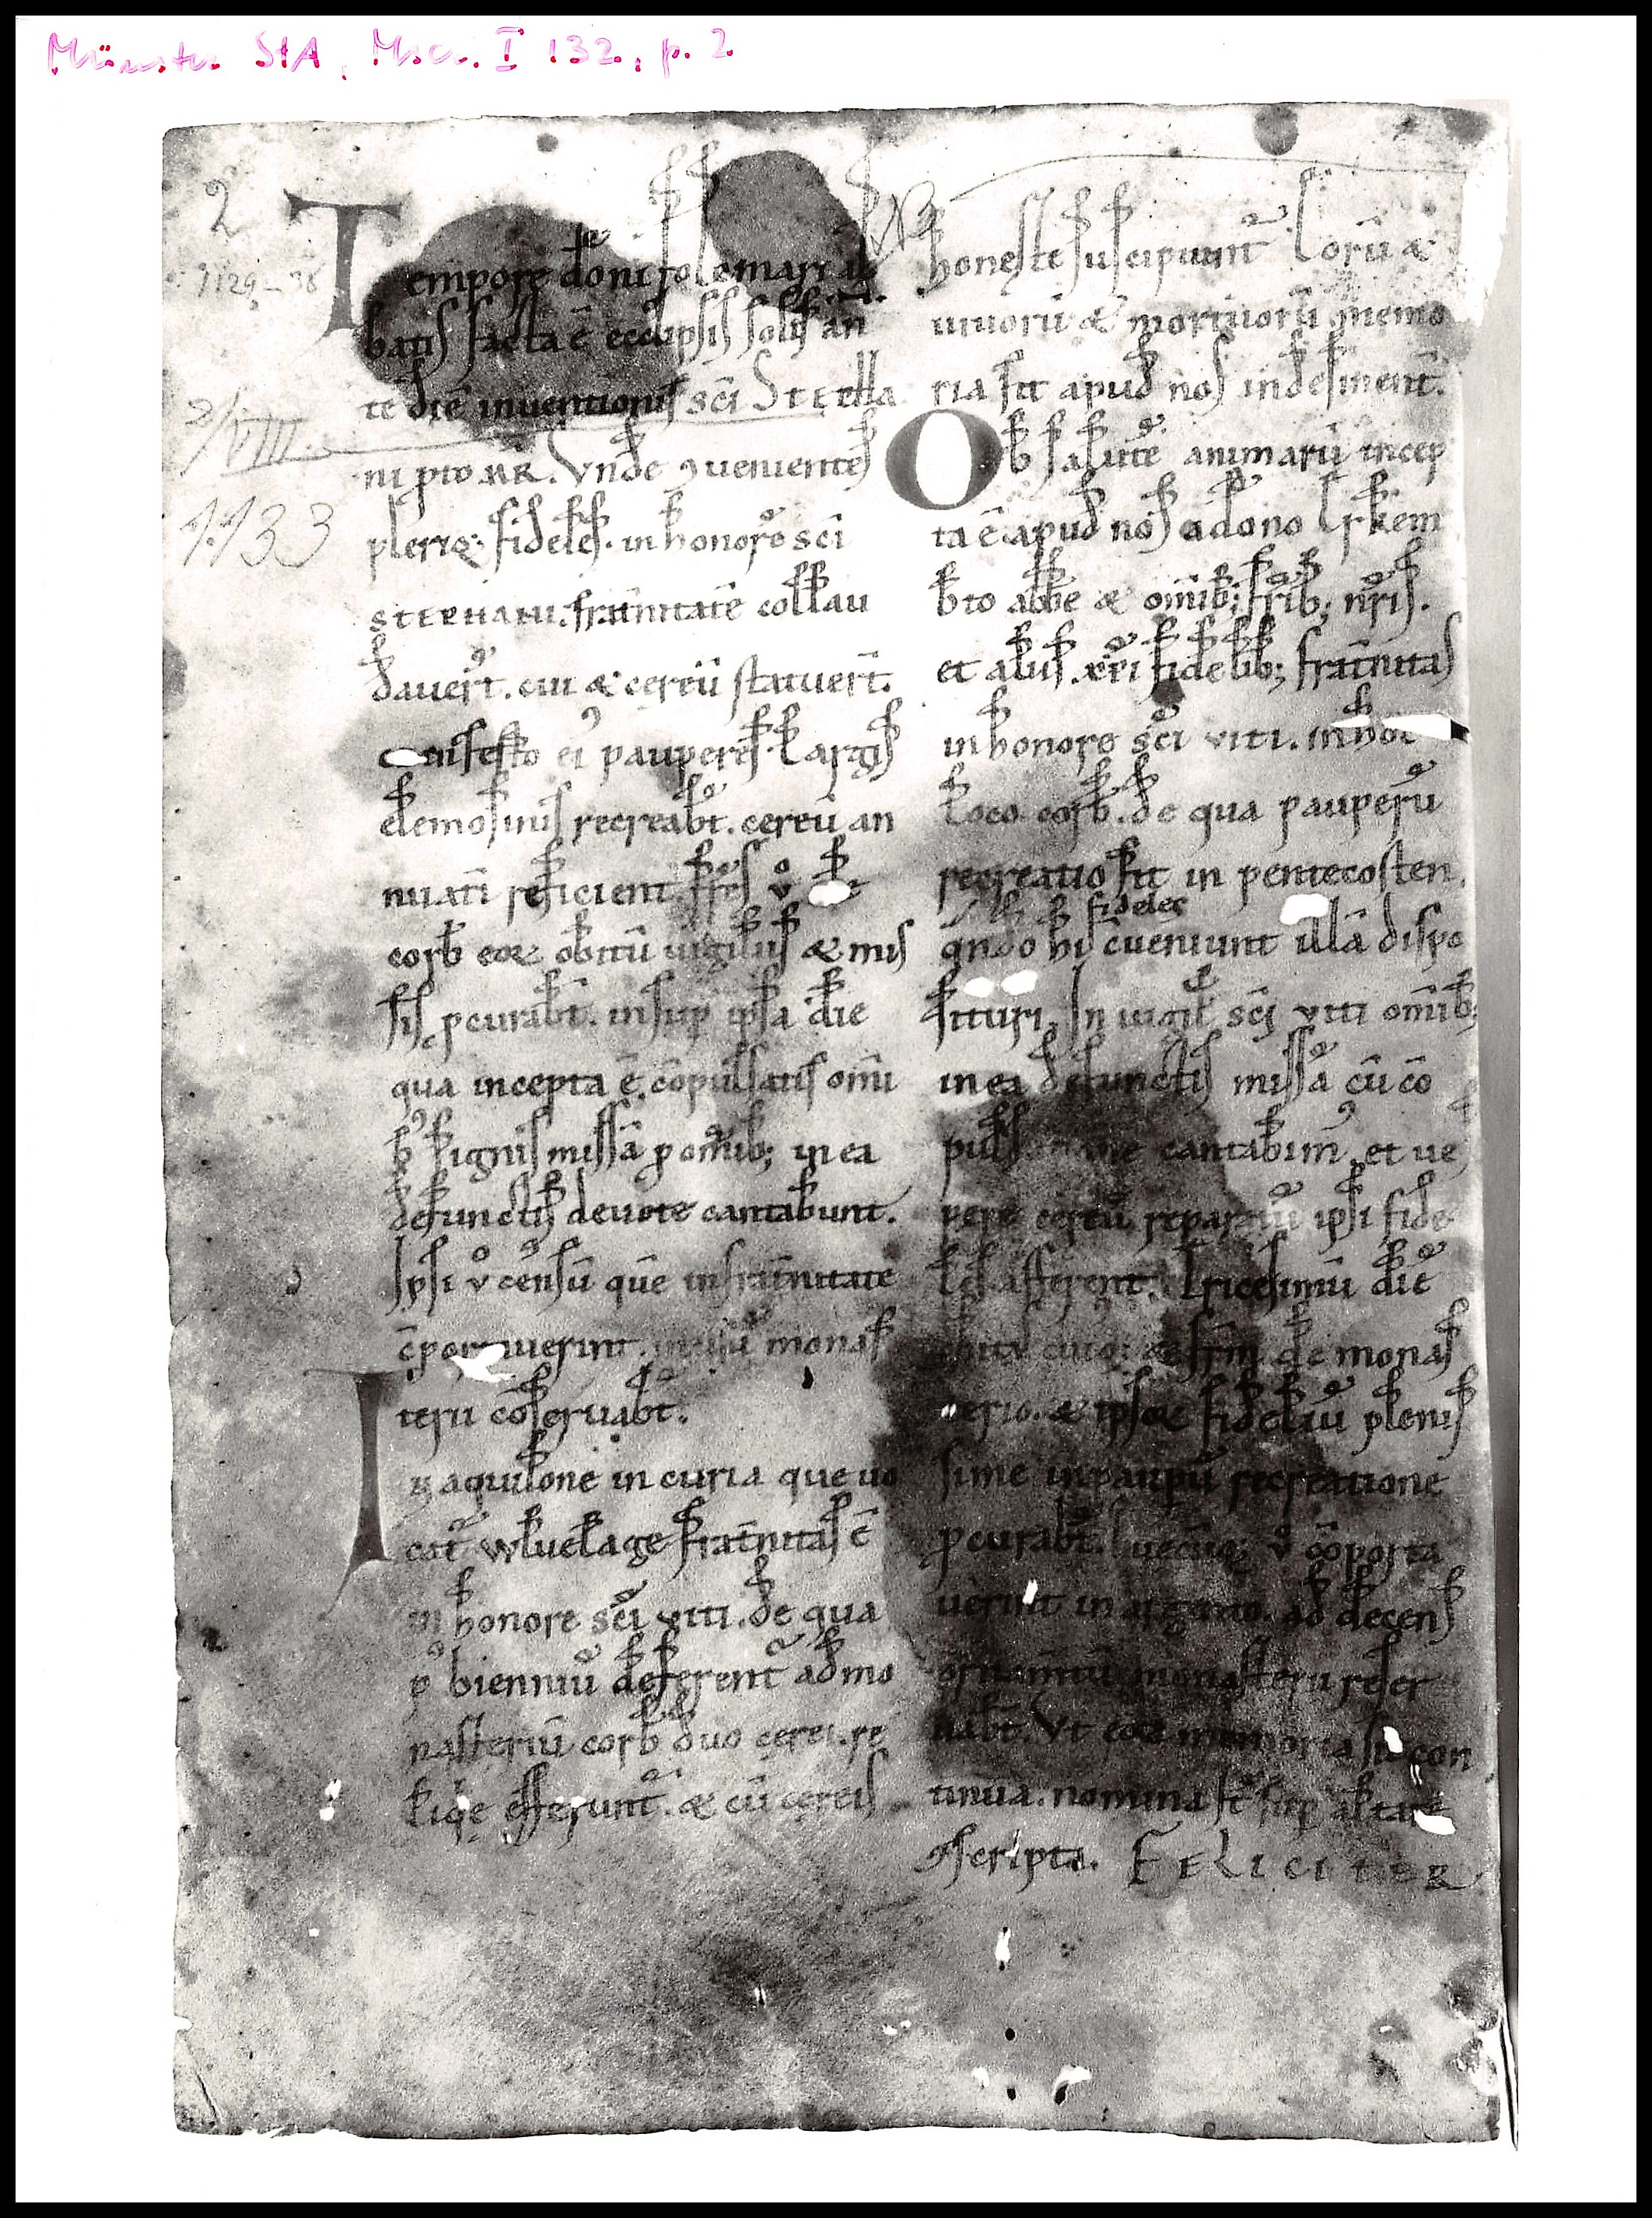 Münster StA, Msc. I 132, p. 2
2
1129–38
2/VIII.
1133
Tempore dōni folcmari ab
batis facta ē ecclipsis solis an
te diē inuentionis sc̄i Stepha
ni ꝓtoMR. Vnde ꝯuenientes
pleriq; fideles. in honorē sc̄i
STEPHANI. frat̄nitatē collau
dauer̄t. cui & cereū statuer̄t.
In festo ei᾽ pauperes largis
elemosinis recreabt̄. cereū an
nuati reficient. fr̄es v̊ de
corb̄ eoꝝ obitū uigiliis & mis
sis ꝓcurabt̄. insup̱ ipsa die
qua incepta ē. cōpulsatis omī
b᾽ signis missā ꝓ omīb; in ea
defunctis deuote cantabunt.
Ipsi v̊ censū quē in frat̄nitate
c̄portuerint. in usū monas
terii cōseruabt̄.
In aquilone in curia que uo
cat̄ wluelage frat̄nitas ē
in honore sc̄i viti. de qua
ꝑ bienniū deferent̄ ad mo
nasteriū corb̄ duo cerei. re
liqę efferunt̄. & cū cereis
honeste suscipiunt̄. Horū &
uiuorū & mortuorū memo
ria fit apud nos indesinent̄.
Ob salutē animarū incep
ta ē apud nos a dōno Erkem
b̄to abbe & omīb; fr̄ib; nr̄is.
et aliis xp̄i fidelib; frat̄nitas
in honorē sc̄i viti. in hoc
loco corb̄. de qua pauperū
recreatio fit in pentecosten.
qn̄do hi fideles c̄ueniunt illā dispo
situri. In uigil̄ sc̄i viti omīb;
in ea defunctis missā cū cō
puls cantabim᾽. et ue
pere cereū reparatū ipsi fide
les afferent. Tricesimū diē
obitꝰ cuiq; & fr̄m de monas
terio. & ipsoꝝ fideliū plenis
sime in paupū recreatione
ꝓcurabt̄. quecūq; v̊ cōporta
uerint in argento. ad decens
ornam̄tū monasterii reser
uabt̄. Vt eoꝝ memoria sit con
tinua. nomina st̄ sup̱ altare
ꝯscripta. FELICITER